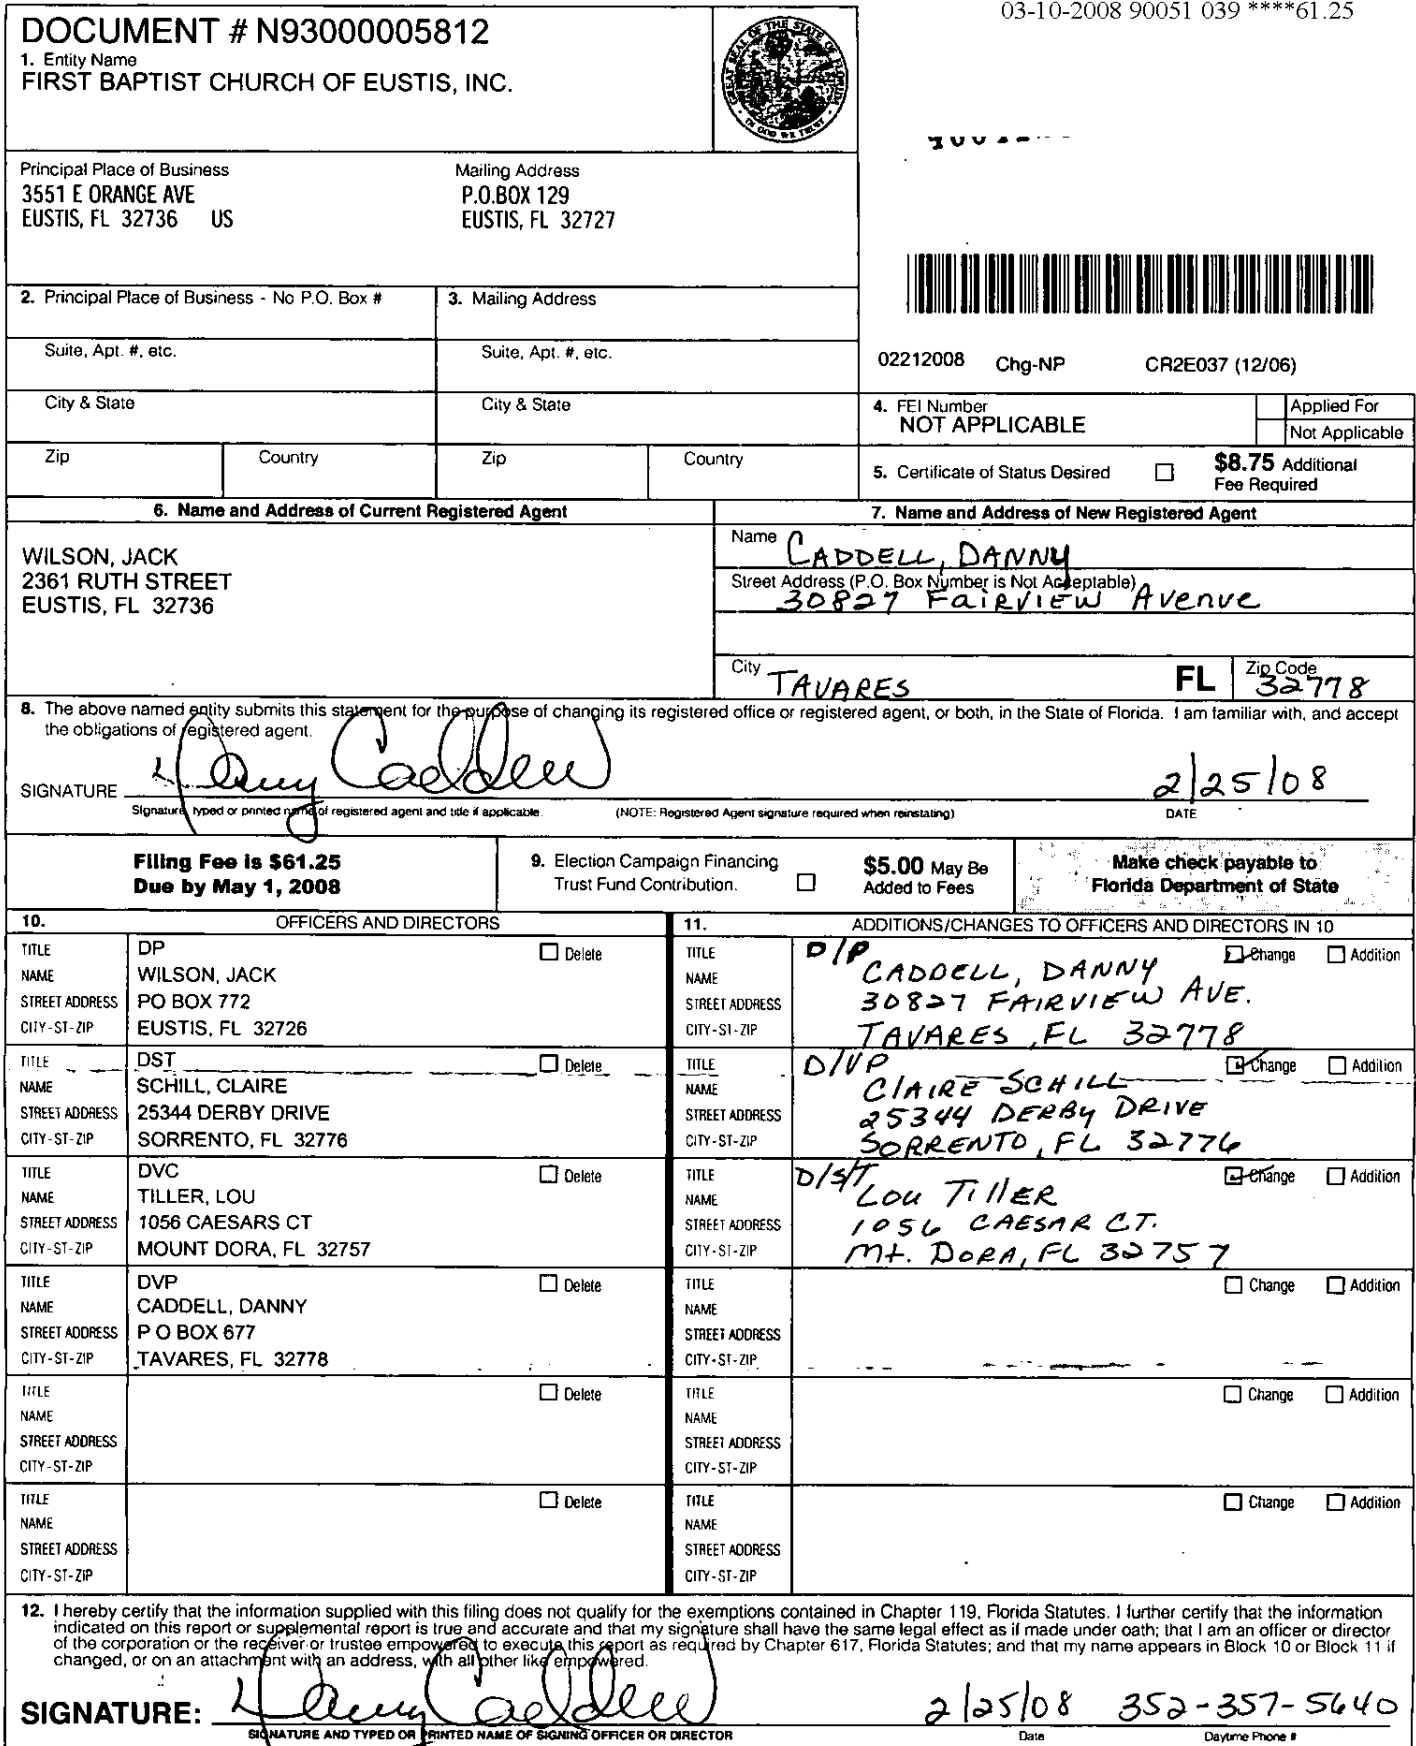 03-10-2008 90051 039 ****61.25
DOCUMENT # N93000005812
1. Entity Name
FIRST BAPTIST CHURCH OF EUSTIS, INC.
GREAT SEAL OF THE STATE OF FLORIDA
IN GOD WE TRUST
Principal Place of Business
3551 E ORANGE AVE
EUSTIS, FL 32736 US
Mailing Address
P.O.BOX 129
EUSTIS, FL 32727
2. Principal Place of Business - No P.O. Box #
3. Mailing Address
Suite, Apt. #, etc.
Suite, Apt. #, etc.
02212008 Chg-NP CR2E037 (12/06)
City & State
City & State
4. FEI Number
NOT APPLICABLE
Applied For
Not Applicable
Zip
Country
Zip
Country
5. Certificate of Status Desired
$8.75 Additional
Fee Required
6. Name and Address of Current Registered Agent
WILSON, JACK
2361 RUTH STREET
EUSTIS, FL 32736
7. Name and Address of New Registered Agent
Name CADDELL, DANNY
Street Address (P.O. Box Number is Not Acceptable)
30827 FAIRVIEW Avenue
City TAVARES FL Zip Code 32778
8. The above named entity submits this statement for the purpose of changing its registered office or registered agent, or both, in the State of Florida. I am familiar with, and accept
the obligations of registered agent.
SIGNATURE Danny Caddell 2/25/08
Signature, typed or printed name of registered agent and title if applicable. (NOTE: Registered Agent signature required when reinstating) DATE
Filing Fee is $61.25
Due by May 1, 2008
9. Election Campaign Financing
Trust Fund Contribution.
$5.00 May Be
Added to Fees
Make check payable to
Florida Department of State
10. OFFICERS AND DIRECTORS
TITLE DP Delete
NAME WILSON, JACK
STREET ADDRESS PO BOX 772
CITY-ST-ZIP EUSTIS, FL 32726
TITLE DST Delete
NAME SCHILL, CLAIRE
STREET ADDRESS 25344 DERBY DRIVE
CITY-ST-ZIP SORRENTO, FL 32776
TITLE DVC Delete
NAME TILLER, LOU
STREET ADDRESS 1056 CAESARS CT
CITY-ST-ZIP MOUNT DORA, FL 32757
TITLE DVP Delete
NAME CADDELL, DANNY
STREET ADDRESS P O BOX 677
CITY-ST-ZIP TAVARES, FL 32778
TITLE Delete
NAME
STREET ADDRESS
CITY-ST-ZIP
TITLE Delete
NAME
STREET ADDRESS
CITY-ST-ZIP
11. ADDITIONS/CHANGES TO OFFICERS AND DIRECTORS IN 10
TITLE D/P Change Addition
NAME CADDELL, DANNY
STREET ADDRESS 30827 FAIRVIEW AVE.
CITY-ST-ZIP TAVARES, FL 32778
TITLE D/VP Change Addition
NAME ClAIRE SCHILL
STREET ADDRESS 25344 DERBY DRIVE
CITY-ST-ZIP SORRENTO, FL 32776
TITLE D/S/T Change Addition
NAME LOU TillER
STREET ADDRESS 1056 CAESAR CT.
CITY-ST-ZIP Mt. DORA, FL 32757
TITLE Change Addition
NAME
STREET ADDRESS
CITY-ST-ZIP
TITLE Change Addition
NAME
STREET ADDRESS
CITY-ST-ZIP
TITLE Change Addition
NAME
STREET ADDRESS
CITY-ST-ZIP
12. I hereby certify that the information supplied with this filing does not qualify for the exemptions contained in Chapter 119, Florida Statutes. I further certify that the information
indicated on this report or supplemental report is true and accurate and that my signature shall have the same legal effect as if made under oath; that I am an officer or director
of the corporation or the receiver or trustee empowered to execute this report as required by Chapter 617, Florida Statutes; and that my name appears in Block 10 or Block 11 if
changed, or on an attachment with an address, with all other like empowered.
SIGNATURE: Danny Caddell 2/25/08 352-357-5640
SIGNATURE AND TYPED OR PRINTED NAME OF SIGNING OFFICER OR DIRECTOR Date Daytime Phone #